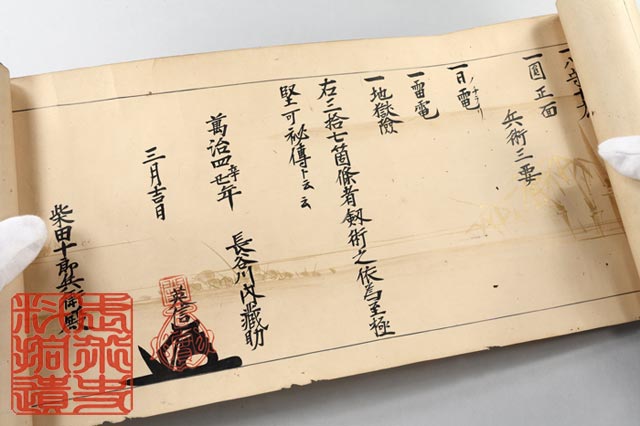 一圓正面
兵術三要
一日電
一雷電
一地獄險
右三拾七箇條者劔術之依為至極
堅可祕傳ト云云
萬治四辛丑年
三月吉日
長谷川内藏助
英信
柴田十郎兵衛殿